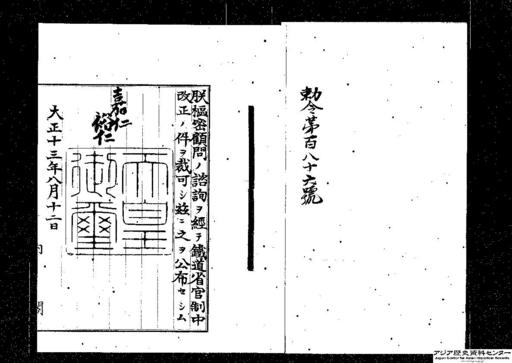 勅令第百八十六號
朕樞密顧問ノ諮詢ヲ經テ鐵道省官制中
改正ノ件ヲ裁可シ玆ニ之ヲ公布セシム
嘉仁
裕仁
天皇
御璽
大正十三年八月十二日
内閣
アジア歴史資料センター
Japan Center for Asian Historical Records